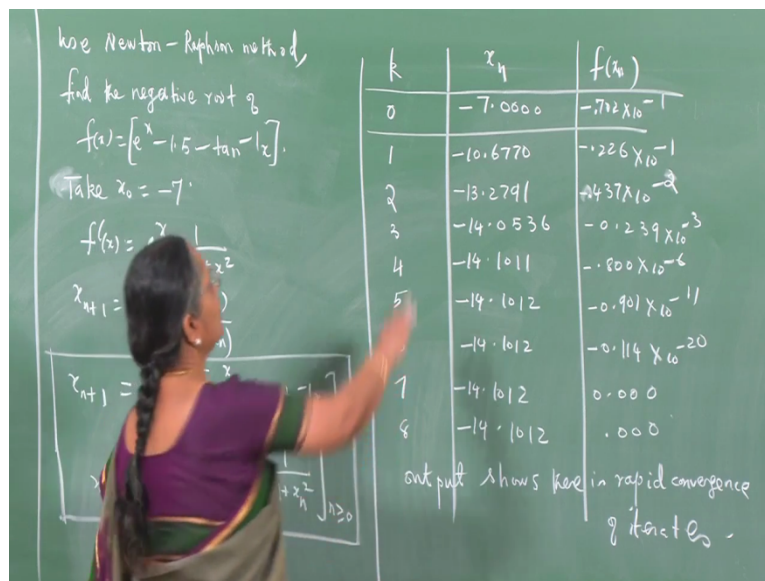 Use Newton-Raphson method,
find the negative root of
f(x) = [eˣ - 1.5 - tan⁻¹x].
Take x₀ = -7.
f'(x) =
xₙ₊₁ =
xₙ₊₁ =
n≥0
k xₙ f(xₙ)
0 -7.0000 -.702×10⁻¹
1 -10.6770 -.226×10⁻¹
2 -13.2791 -.437×10⁻²
3 -14.0536 -0.239×10⁻³
4 -14.1011 -.800×10⁻⁶
5 -14.1012 -0.901×10⁻¹¹
-14.1012 -0.114×10⁻²⁰
7 -14.1012 0.000
8 -14.1012 .000
output shows here in rapid convergence
of iterates.